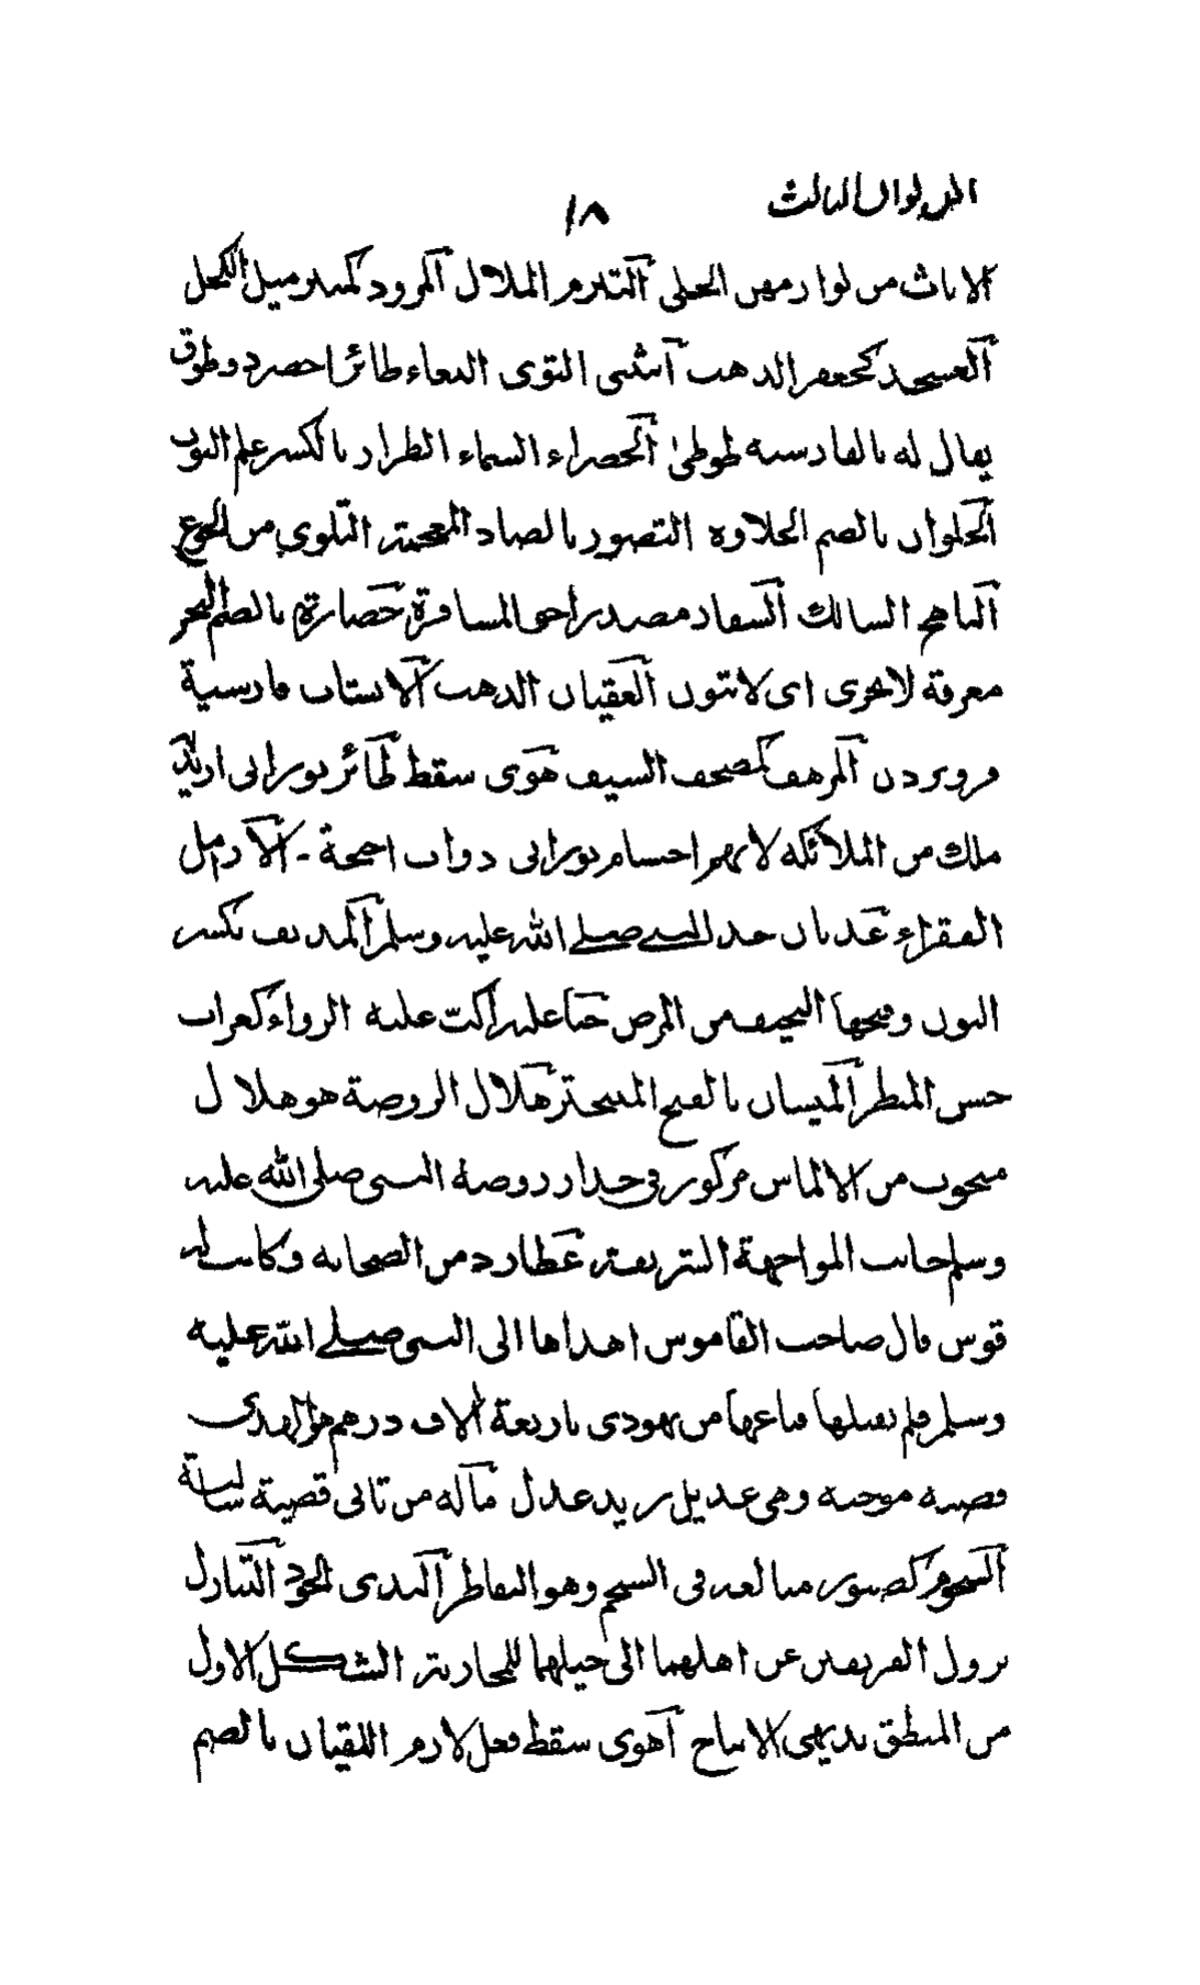 الديوان الثالث
١٨
الاناث من لوازمهن الحلى التقدم الملال المرود كمنبر ميل الكحل
العسجد كجعفر الذهب آنثنى التوى الببغاء طائر اخضر ذو طوق
يقال له بالفارسية طوطى الخضراء السماء الطراز بالكسر علم الثوب
الحلوان بالضم الحلاوة التضور بالضاد المعجمة التلوى من الجوع
الناهج السالك السفار مصدر اخى المسافرة حضارة بالضم البحر
معرفة لا تجرى اى لا تنون العقيان الذهب الانتاب فارسية
فرو بردن المرهف كمصحف السيف هوى سقط طائر نورانى اريد
ملك من الملائكة لانهم اجسام نورانى ذوات اجنحة - الارامل
الفقراء عدنان جد النبى صلى الله عليه وسلم المدنف بكسر
النون وفتحها النحيف من المرض حنا عليه اكبّ عليه الرواء كغراب
حسن المنظر الميسان بالفتح المتبختر هلال الروضة هو هلال
منحوت من الالماس مركوز فى جدار روضة النبى صلى الله عليه
وسلم جانب المواجهة الشريفة عطارد من الصحابة وكانت له
قوس قال صاحب القاموس اهداها الى النبى صلى الله عليه
وسلم فلم يقبلها فباعها من يهودى باربعة آلاف درهم هو الهدى
قضية موجبة وهى عديل زيد عدل مآله من تانى قضية سالبة
السجوم كصبور مبالغة فى السجم وهو التقاطر الندى الجود التنازل
نزول الفريقين عن اهلهما الى خيلهما للمحاربة الشكل الاول
من المنطق بديهى الانتاج آهوى سقط فعل لازم اللقيان بالضم